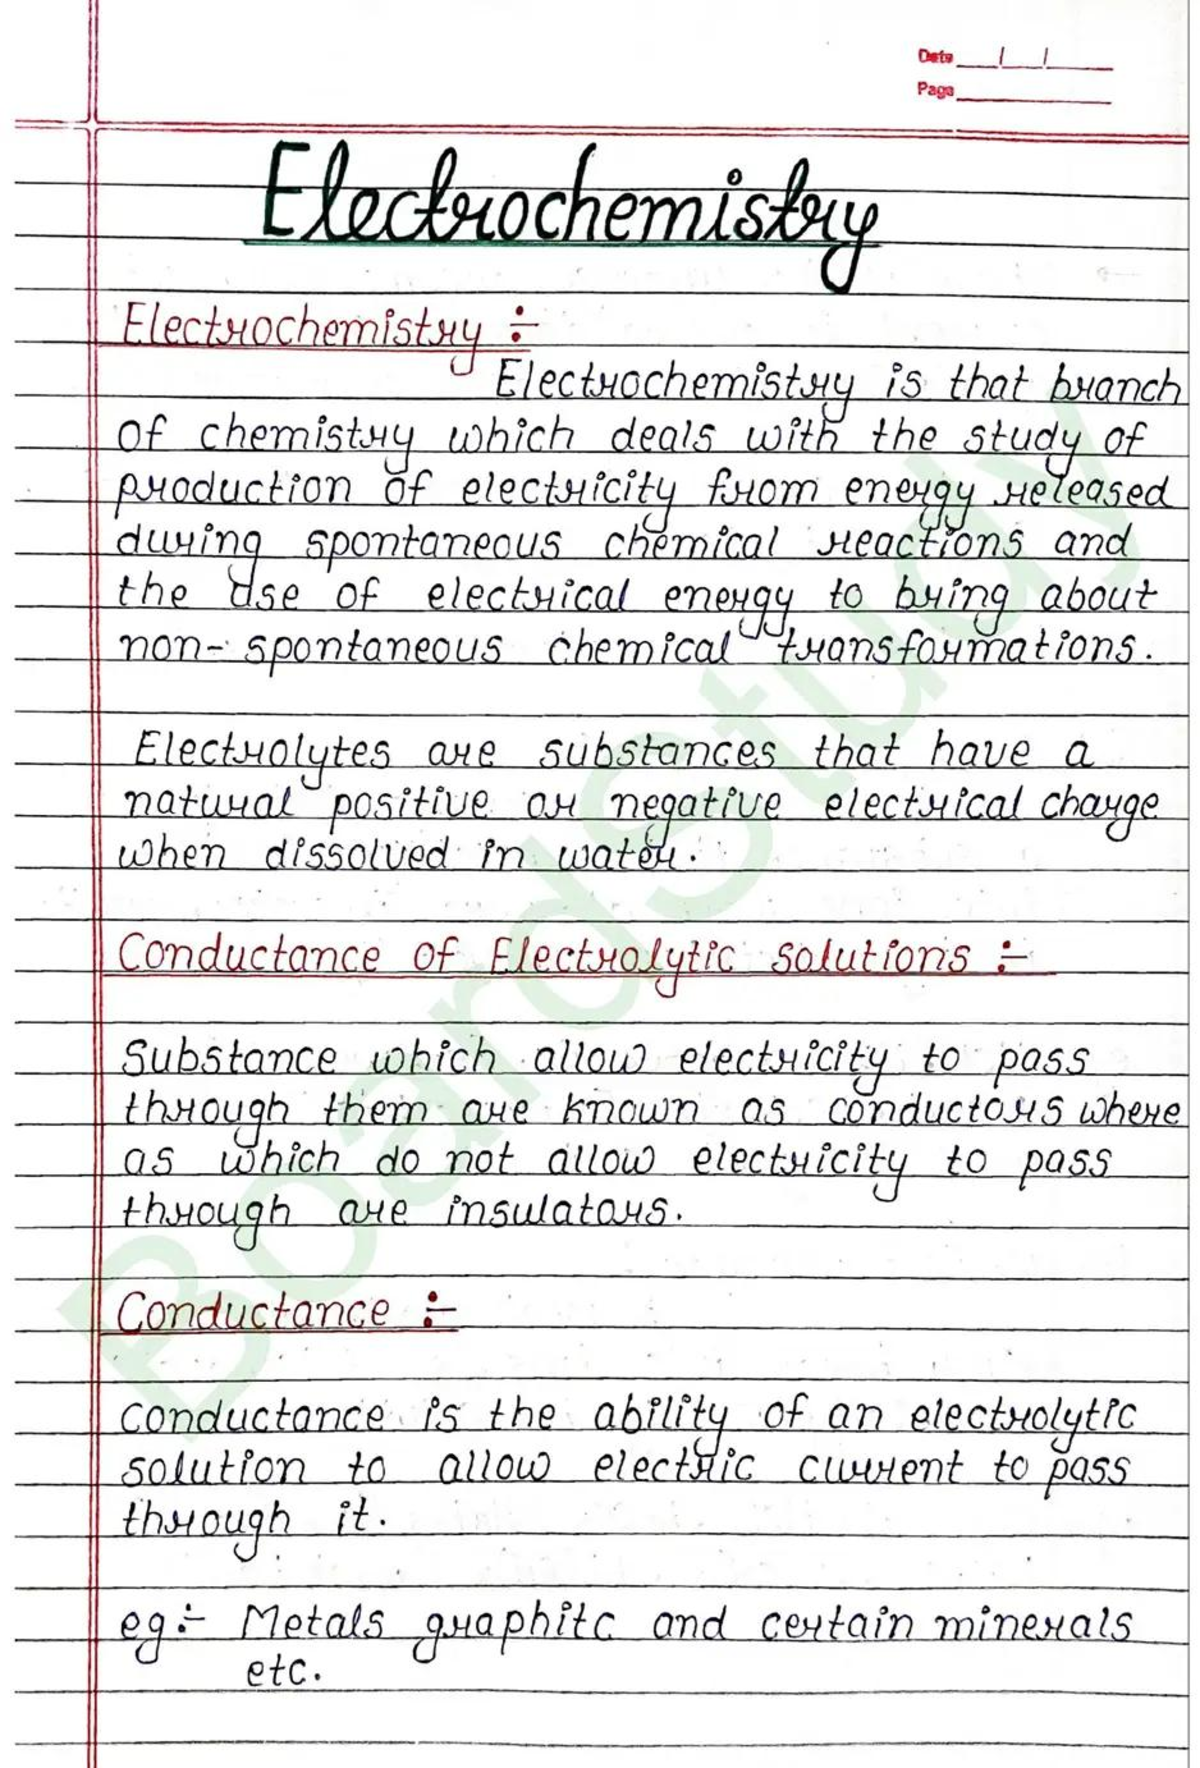 Date
Page
Electrochemistry
Electrochemistry :-
Electrochemistry is that branch
of chemistry which deals with the study of
production of electricity from energy released
during spontaneous chemical reactions and
the use of electrical energy to bring about
non-spontaneous chemical transformations.
Electrolytes are substances that have a
natural positive or negative electrical charge
when dissolved in water.
Conductance of Electrolytic solutions :-
Substance which allow electricity to pass
through them are known as conductors where
as which do not allow electricity to pass
through are insulators.
Conductance :-
conductance is the ability of an electrolytic
solution to allow electric current to pass
through it.
eg:- Metals graphitc and certain minerals
etc.
BoardStudy